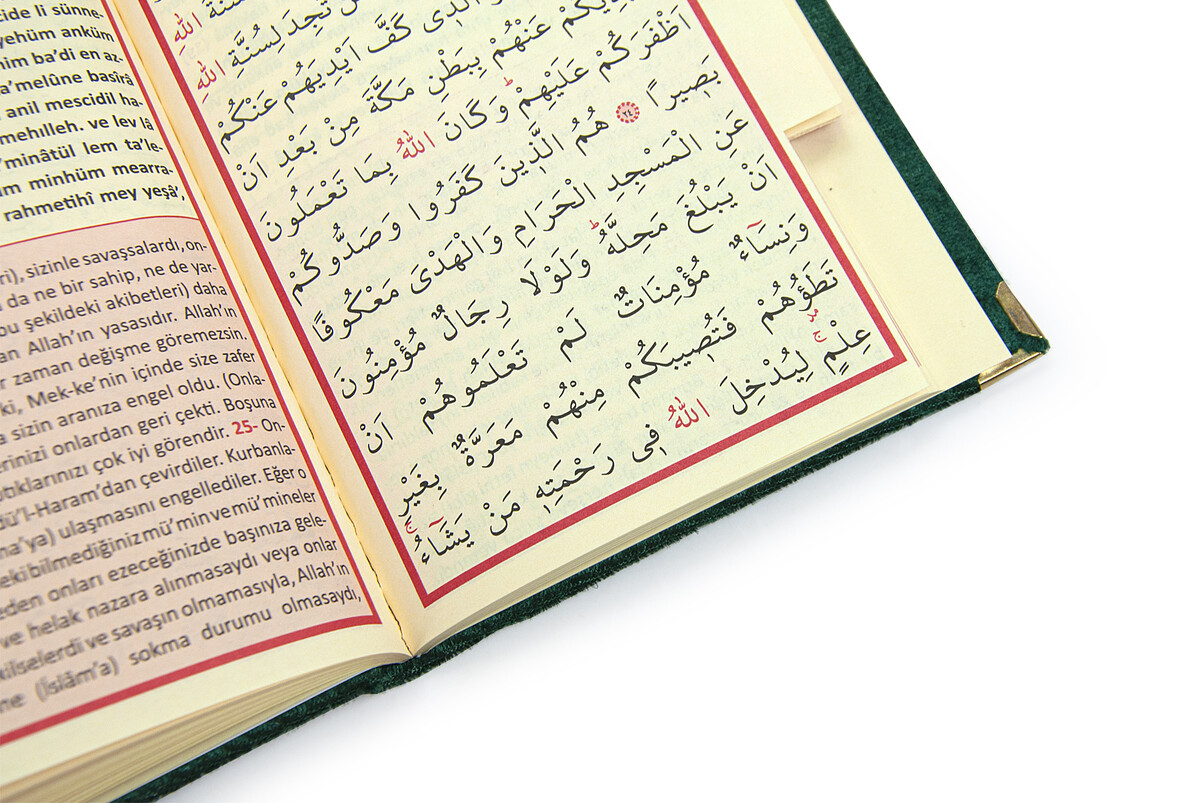 cide li sünne-
yehüm anküm
him ba'di en az-
a'melûne basîrâ
anil mescidil ha-
mehılleh. ve lev lâ
'minâtül lem ta'le-
üm minhüm mearra-
rahmetihî mey yeşâ',
ri), sizinle savaşsalardı, on-
da ne bir sahip, ne de yar-
bu şekildeki akibetleri) daha
an Allah'ın yasasıdır. Allah'ın
r zaman değişme göremezsin.
ki, Mek-ke'nin içinde size zafer
a sizin aranıza engel oldu. (Onla-
erinizi onlardan geri çekti. Boşuna
ptıklarınızı çok iyi görendir. 25- On-
dü'l-Haram'dan çevirdiler. Kurbanla-
na'ya) ulaşmasını engellediler. Eğer o
eki bilmediğiniz mü'min ve mü'mineler
eden onları ezeceğinizde başınıza gele-
ve helak nazara alınmasaydı veya onlar
kilselerdi ve savaşın olmamasıyla, Allah'ın
ne (İslâm'a) sokma durumu olmasaydı,
سُنَّةَ اللّٰهِ
تَجِدَ لِسُنَّةِ اللّٰهِ
الَّذ۪ى كَفَّ اَيْدِيَهُمْ عَنْكُمْ
وَاَيْدِيَكُمْ عَنْهُمْ بِبَطْنِ مَكَّةَ مِنْ بَعْدِ اَنْ
اَظْفَرَكُمْ عَلَيْهِمْۜ وَكَانَ اللّٰهُ بِمَا تَعْمَلُونَ
بَص۪يرًا ﴿٢٤﴾ هُمُ الَّذ۪ينَ كَفَرُوا وَصَدُّوكُمْ
عَنِ الْمَسْجِدِ الْحَرَامِ وَالْهَدْىَ مَعْكُوفًا
اَنْ يَبْلُغَ مَحِلَّهُۜ وَلَوْلَا رِجَالٌ مُؤْمِنُونَ
وَنِسَٓاءٌ مُؤْمِنَاتٌ لَمْ تَعْلَمُوهُمْ اَنْ
تَطَؤُ۫هُمْ فَتُص۪يبَكُمْ مِنْهُمْ مَعَرَّةٌ بِغَيْرِ
عِلْمٍۚ لِيُدْخِلَ اللّٰهُ ف۪ى رَحْمَتِه۪ مَنْ يَشَٓاءُۚ